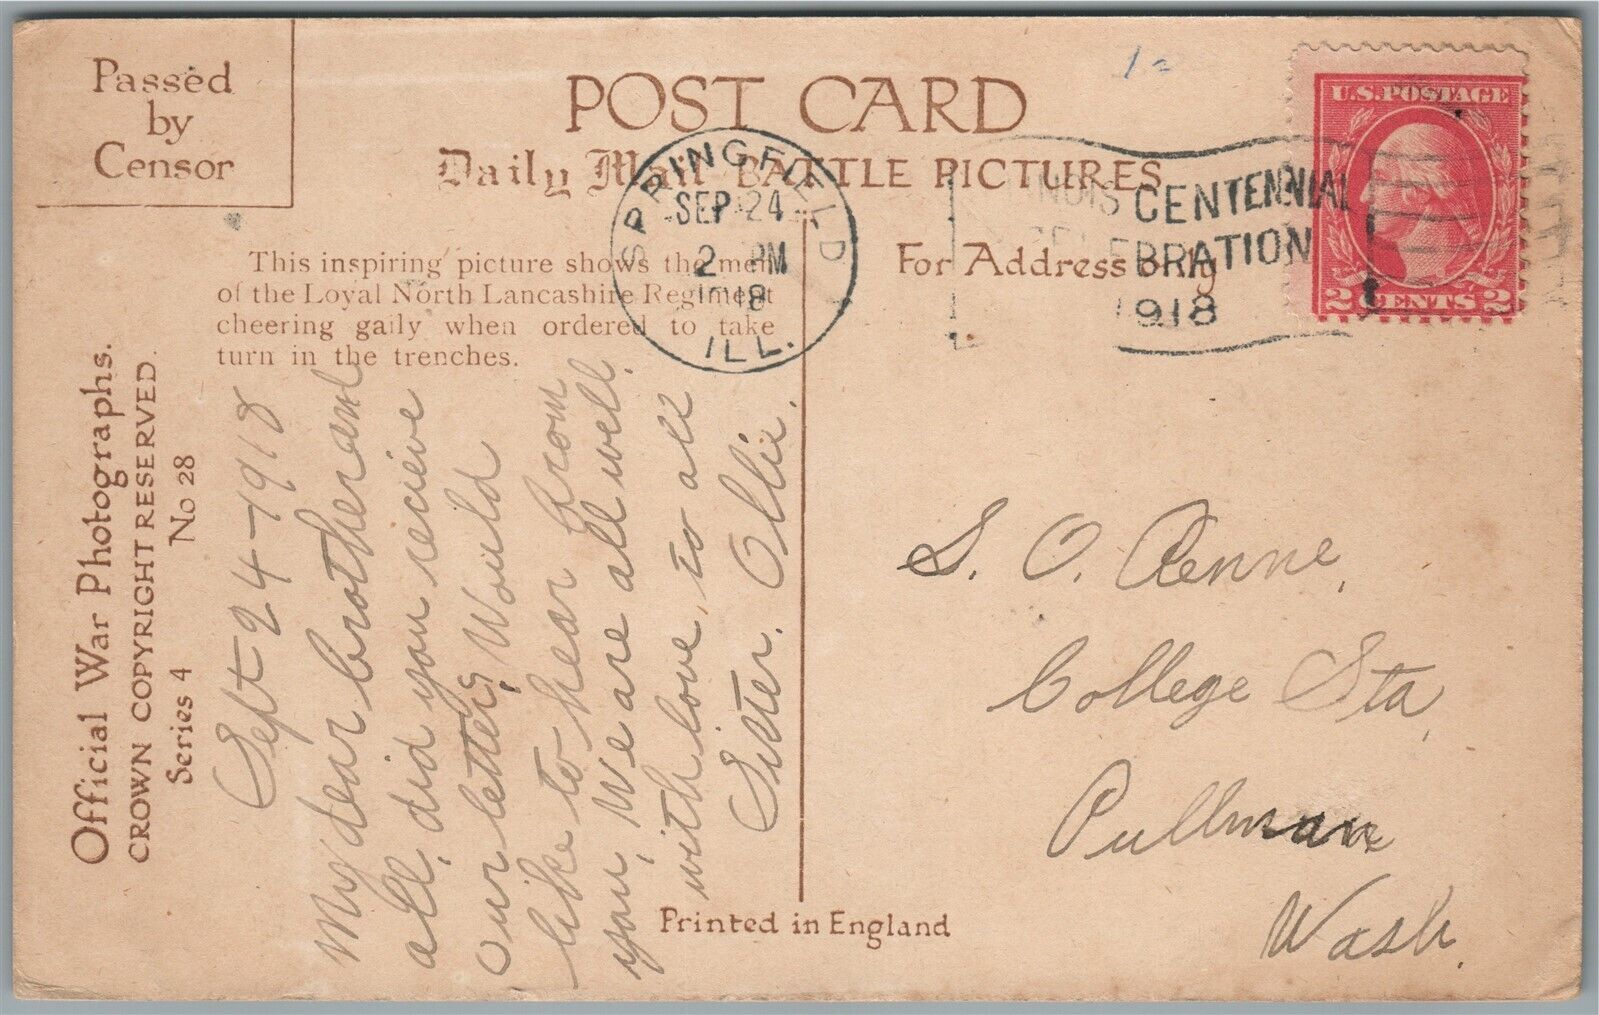 Passed
by
Censor
POST CARD
Daily Mail BATTLE PICTURES
This inspiring picture shows the men
of the Loyal North Lancashire Regiment
cheering gaily when ordered to take
turn in the trenches.
For Address only
SPRINGFIELD
SEP 24
2 PM
1918
ILL.
CENTENNIAL
CELEBRATION
1918
U.S. POSTAGE
2 CENTS 2
Official War Photographs.
CROWN COPYRIGHT RESERVED.
Series 4 No 28
Sept 24-1918
My dear brother and
all, did you recieve
our letters, Would
like to hear from
you, We are all well.
with love, to all
Sister. Ollie.
S. O.
College Sta,
Pullman
Wash.
Printed in England